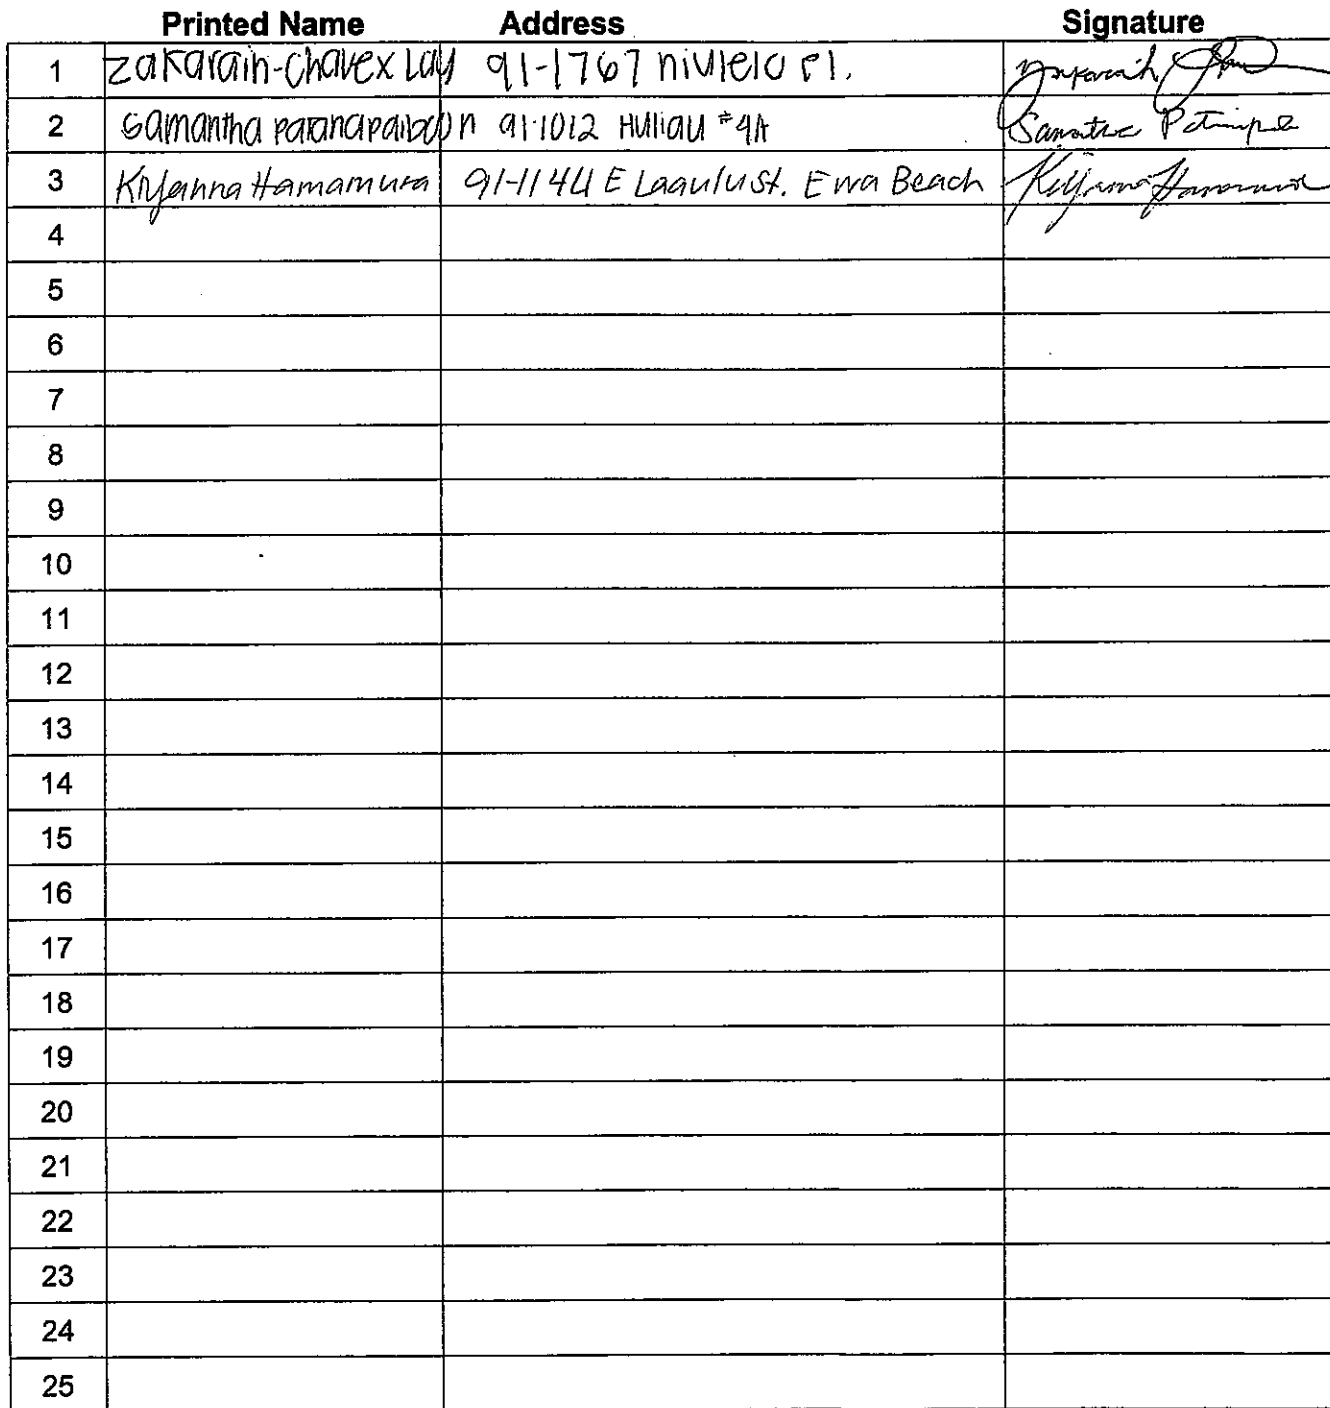 Printed Name Address Signature
1 Zakarain-Chavex Lay 91-1767 niulelo Pl.
2 Samantha Patanapaiboon 91-1012 Huliau #4A Samantha
3 Kiyanna Hamamura 91-1144 E Laaulu St. Ewa Beach Kiyanna Hamamura
4
5
6
7
8
9
10
11
12
13
14
15
16
17
18
19
20
21
22
23
24
25